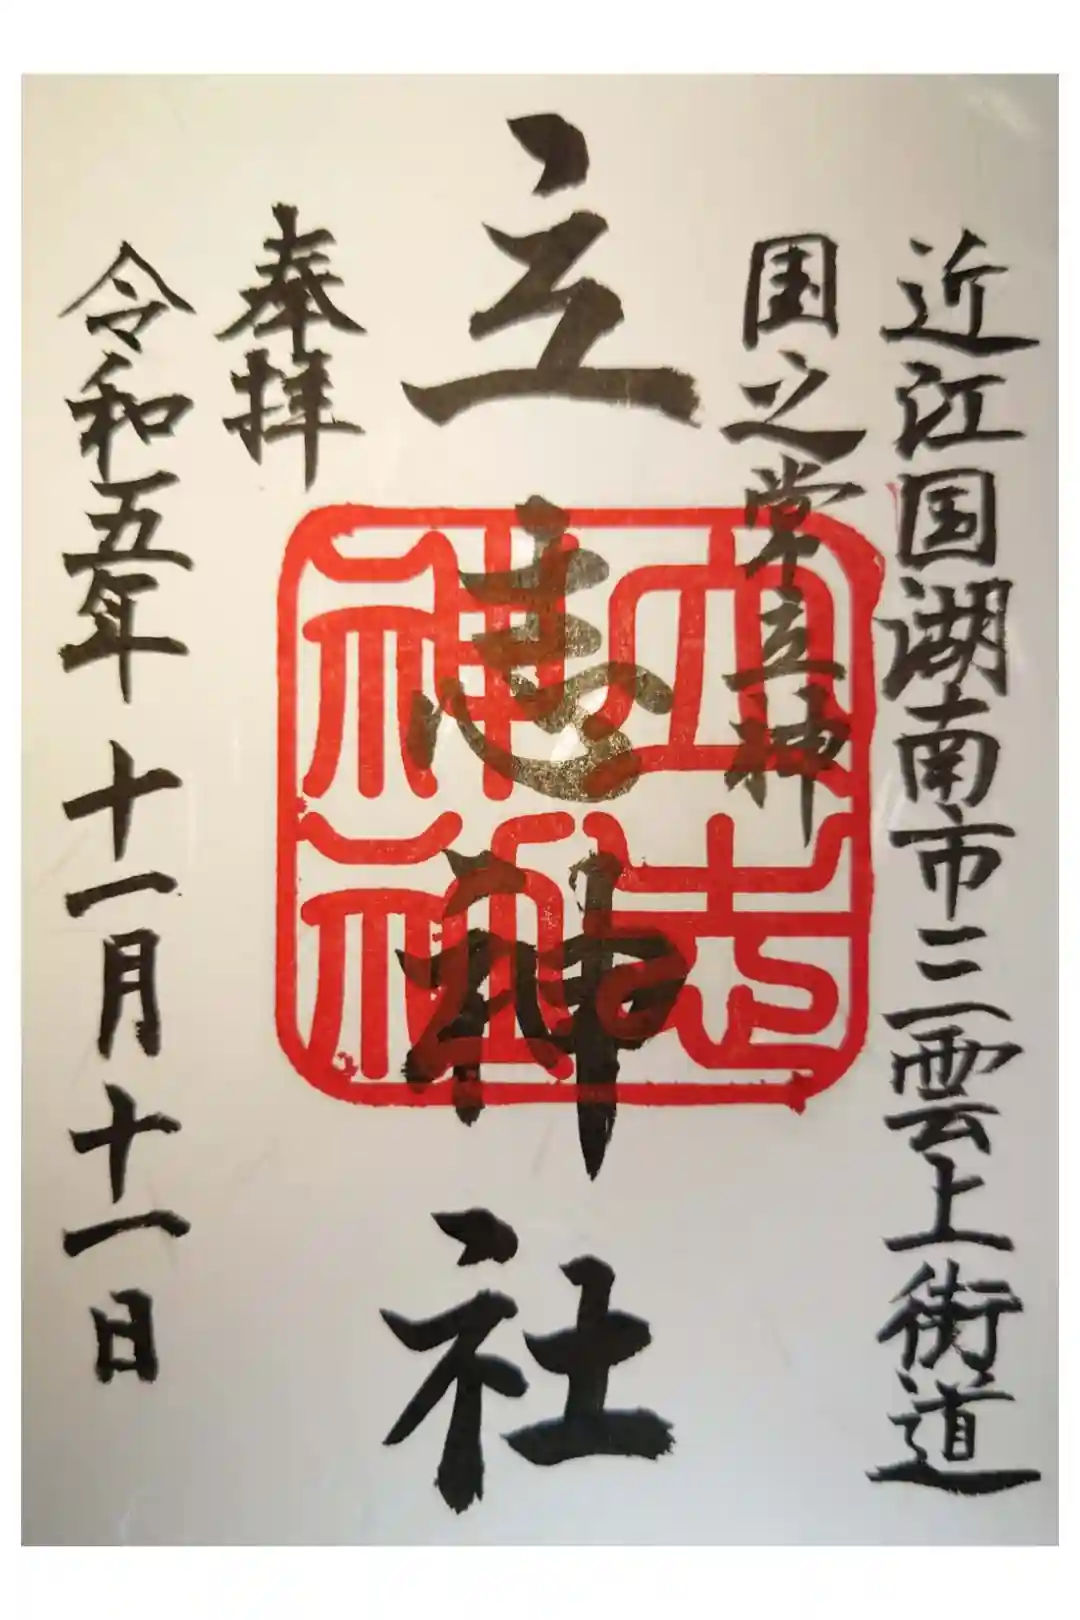 近江国湖南市三雲上街道
国之常立神
立志神社
奉拝
令和五年十一月十一日